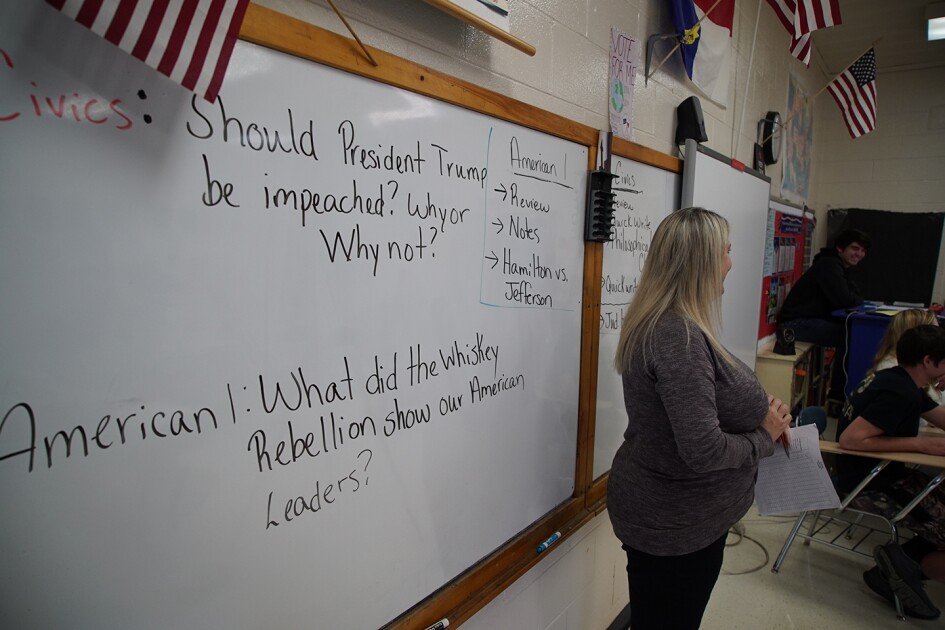 Civics:
Should President Trump
be impeached? Why or
Why not?
American 1
→ Review
→ Notes
→ Hamilton vs.
Jefferson
Civics
Review
Quick Write
Philosophical
→ Quick writ
American 1: What did the Whiskey
Rebellion show our American
Leaders?
VOTE
FOR ME